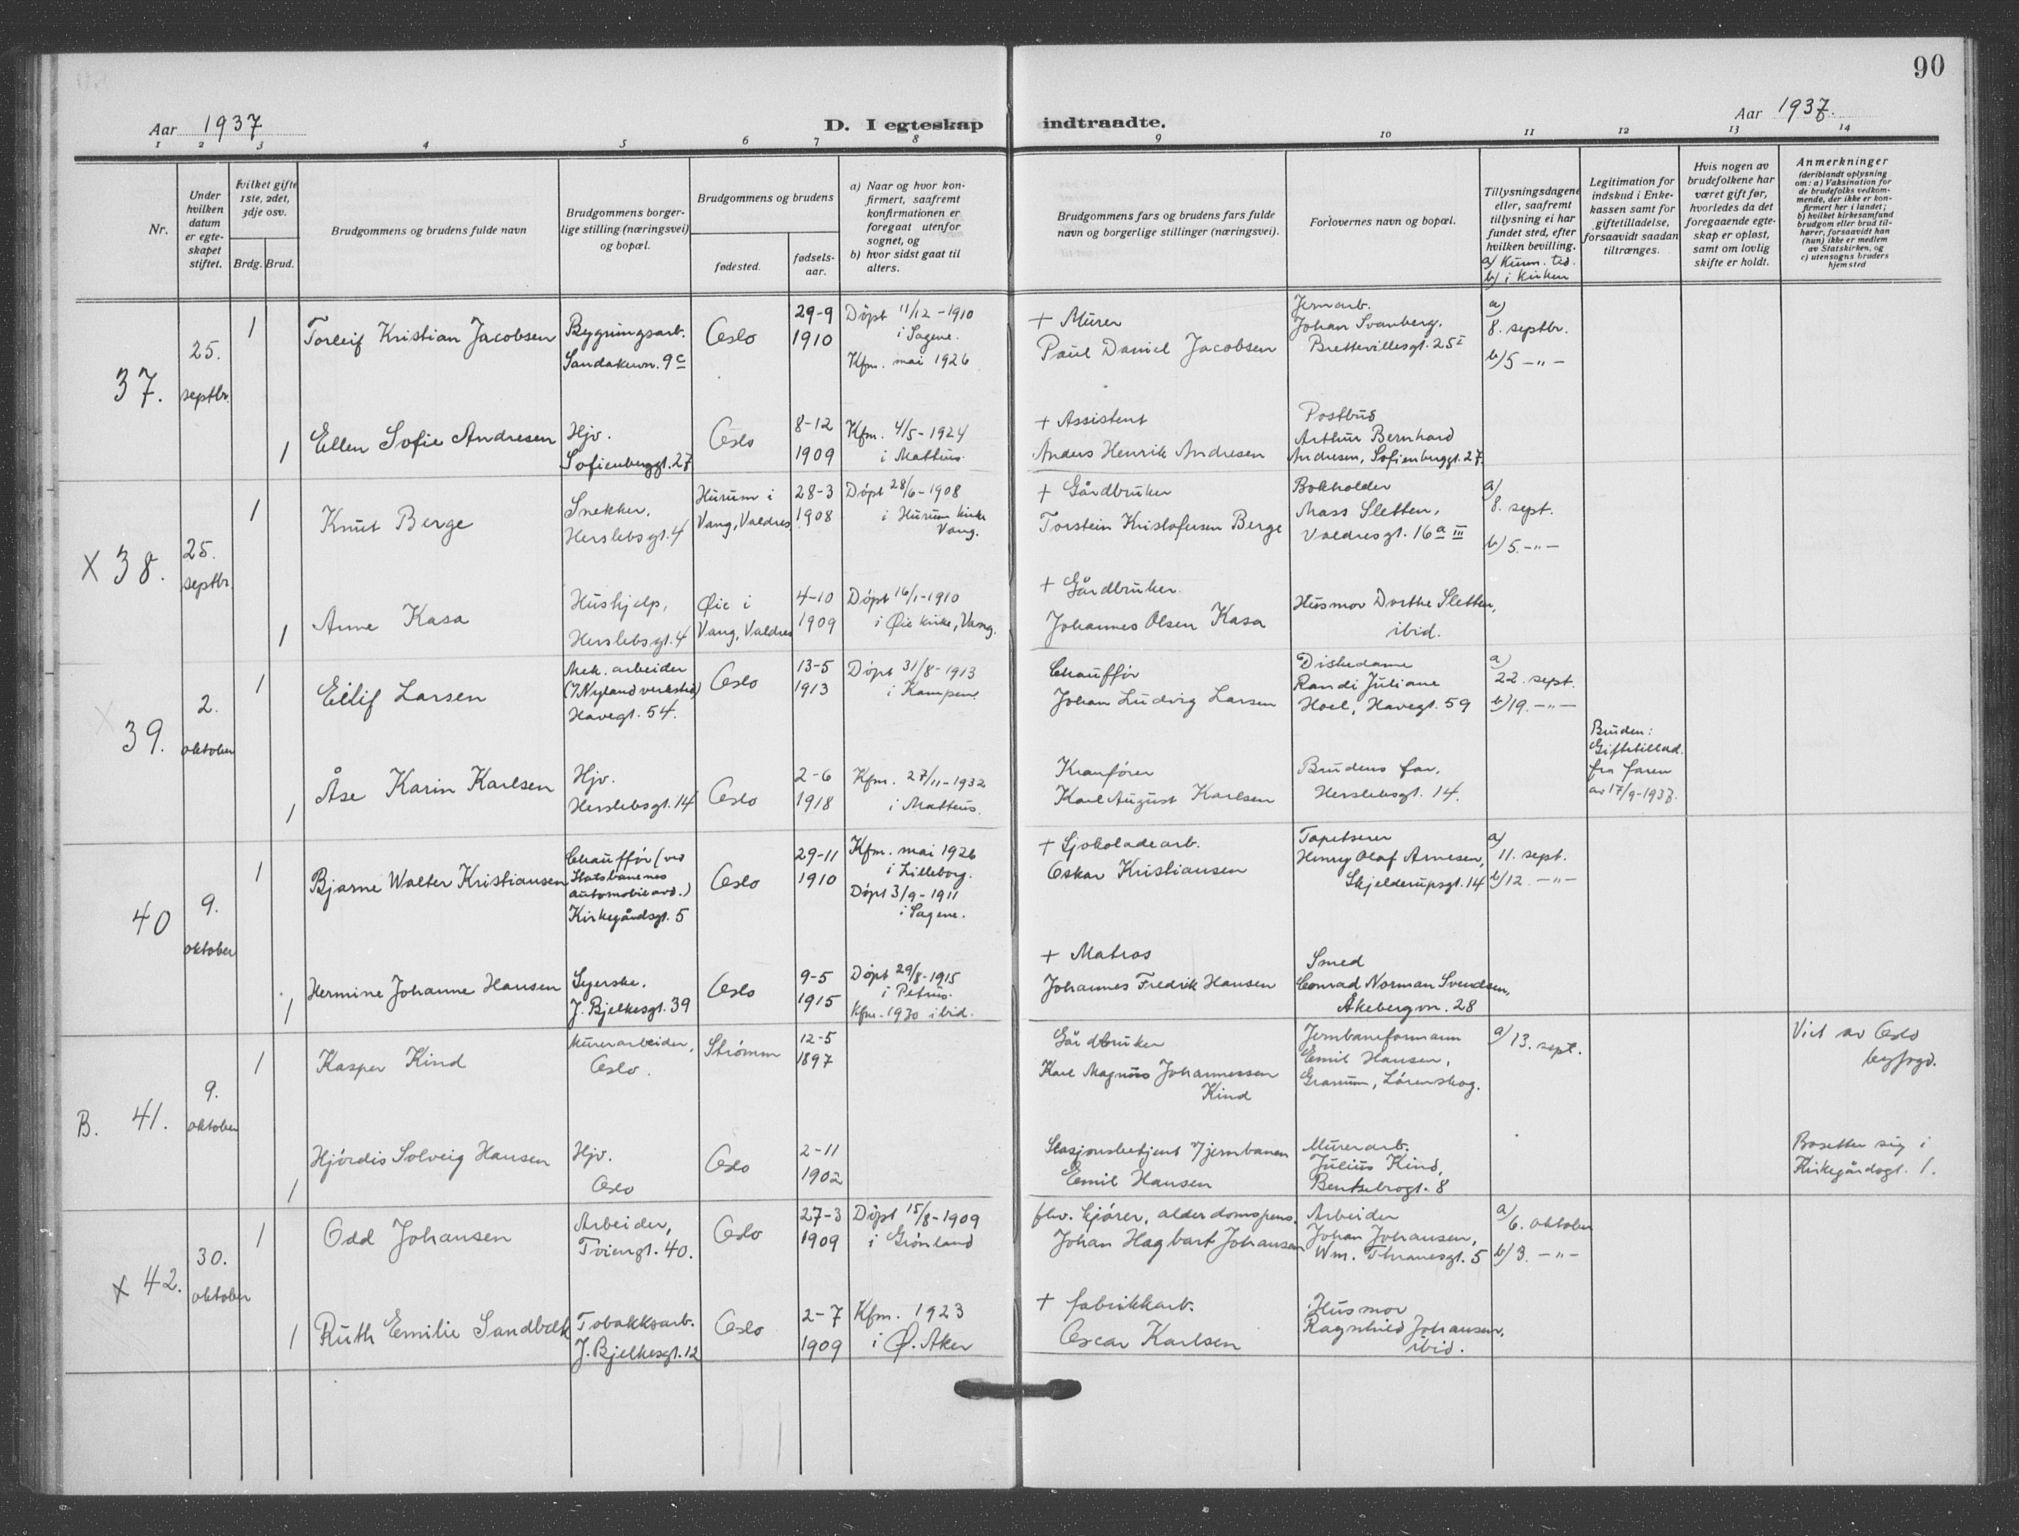 90
Aar 1937
D. I egteskap indtraadte.
Aar 1937.
1 2 3 4 5 6 7 8 9 10 11 12 13 14
Nr.
Under hvilken datum er egteskapet stiftet.
Hvilket gifte 1ste, 2det, 3dje osv.
Brdg. Brud.
Brudgommens og brudens fulde navn
Brudgommens borgerlige stilling (næringsvei) og bopæl.
Brudgommens og brudens
fødested.
fødselsaar.
a) Naar og hvor konfirmert, saafremt konfirmationen er foregaat utenfor sognet, og
b) hvor sidst gaat til alters.
Brudgommens fars og brudens fars fulde navn og borgerlige stillinger (næringsvei).
Forlovernes navn og bopæl.
Tillysningsdagene eller, saafremt tillysning ei har fundet sted, efter hvilken bevilling.
a) Kunn. tid.
b) i kirken
Legitimation for indskud i Enkekassen samt for giftetilladelse, forsaavidt saadan tiltrænges.
Hvis nogen av brudefolkene har været gift før, hvorledes da det foregaaende egteskap er opløst, samt om lovlig skifte er holdt.
Anmerkninger
(deriblandt oplysning om: a) Vaksination for de brudefolks vedkommende, der ikke er konfirmert her i landet; b) hvilket kirkesamfund brudgom eller brud tilhører, forsaavidt han (hun) ikke er medlem av Statskirken, og c) utensogns bruders hjemsted
37.
25. septbr.
1
Torleif Kristian Jacobsen
Bygningsarb.
Sandakervn. 9c
Oslo
29-9
1910
Døpt 11/12-1910
i Sagene.
Kfm. mai 1926
+ Murer
Paul Daniel Jacobsen
Jernarb.
Johan Svanberg,
Brettevillesgt. 25 I
a)
8. septbr.
b) 5 -"-
1
Ellen Sofie Andresen
Hjv.
Sofienberggt. 27
Oslo
8-12
1909
Kfm. 4/5-1924
i Matteus.
+ Assistent
Anders Henrik Andresen
Postbud
Arthur Bernhard
Andresen, Sofienberggt. 27.
X 38.
25. septbr.
1
Knut Berge
Snekker,
Herslebsgt. 4
Hurum i
Vang, Valdres
28-3
1908
Døpt 28/6-1908
i Hurum kirke
Vang.
+ Gårdbruker
Torstein Kristofersen Berge
Bokholder
Mass Sletten,
Valdresgt. 16 a III
a)
8. sept.
b) 5. -"-
1
Anne Kasa
Hushjelp,
Herslebsgt. 4
Øie i
Vang, Valdres
4-10
1909
Døpt 16/1-1910
i Øie kirke, Vang.
+ Gårdbruker.
Johannes Olsen Kasa
Husmor Dorthe Sletten,
ibid.
39.
2. oktober
1
Eilif Larsen
Mek. arbeider
(v/Nyland verksted)
Havegt. 54.
Oslo
13-5
1913
Døpt 31/8-1913
i Kampen.
Chauffør
Johan Ludvig Larsen
Diskedame
Randi Juliane
Hoel, Havegt. 59
a)
22. sept.
b) 19. -"-
1
Åse Karin Karlsen
Hjv.
Herslebsgt. 14
Oslo
2-6
1918
Kfm. 27/11-1932
i Matteus.
Kranfører
Karl August Karlsen
Brudens far,
Herslebsgt. 14.
Bruden:
Giftetillad.
fra faren
av 17/9-1937.
40
9. oktober
1
Bjarne Walter Kristiansen
Chauffør (ved
Statsbanenes
automobilavd.)
Kirkegårdsgt. 5
Oslo
29-11
1910
Kfm. mai 1926
i Lilleborg.
Døpt 3/9-1911
i Sagene.
+ Sjokoladearb.
Oskar Kristiansen
Tapetserer
Henry Olaf Arnesen,
Skjelderupsgt. 14
a)
11. sept.
b) 12. -"-
1
Hermine Johanne Hansen
Syerske.
J. Bjelkesgt. 39
Oslo
9-5
1915
Døpt 29/8-1915
i Petrus.
Kfm. 1930 ibid.
+ Matros
Johannes Fredrik Hansen
Smed
Conrad Norman Svendsen,
Åkebergvn. 28
B. 41.
9. oktober
1
Kasper Kind
Murerarbeider,
Oslo.
Strømm
12-5
1897
Gårdbruker
Karl Magnus Johannessen
Kind
Jernbaneformann
Emil Hansen,
Granum, Lørenskog.
a) 13. sept.
Viet av Oslo
byfogd.
1
Hjørdis Solveig Hansen
Hjv.
Oslo
Oslo
2-11
1902
Stasjonsbetjent v/jernbanen
Emil Hansen
Murerarb.
Julius Kind,
Bentsebrogt. 8
Bosetter sig i
Kirkegårdsgt. 1.
X 42.
30. oktober
1
Odd Johansen
Arbeider,
Tøiengt. 40.
Oslo
27-3
1909
Døpt 15/8-1909
i Grønland
fhv. kjører, alderdomspens.
Johan Hagbart Johansen
Arbeider
Johan Johansen,
Wm. Thranesgt. 5
a)
6. oktober
b) 3. -"-
1
Ruth Emilie Sandbæk
Tobakksarb.
J. Bjelkesgt. 12
Oslo
2-7
1909
Kfm. 1923
i Ø. Aker
+ fabrikkarb.
Oscar Karlsen
Husmor
Ragnhild Johansen,
ibid.